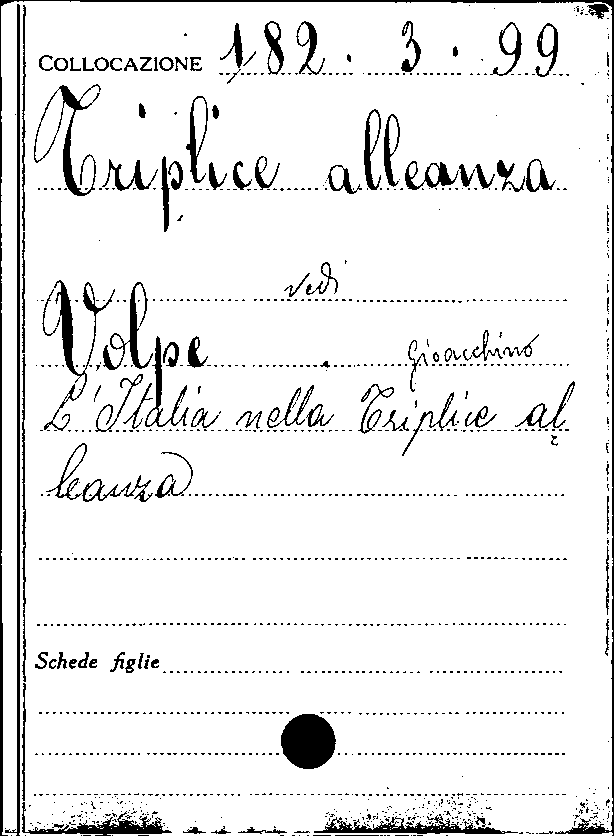 COLLOCAZIONE 182 . 3 . 99
Triplice alleanza
vedi
Volpe . Gioacchino
L'Italia nella Triplice al
leanza
Schede figlie